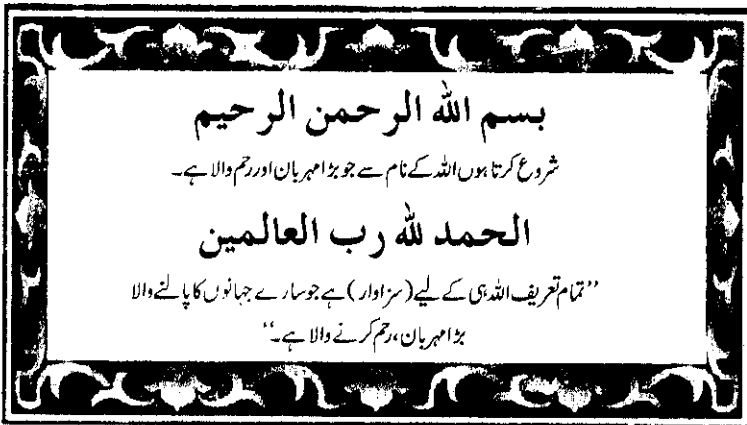 بسم الله الرحمن الرحيم
شروع کرتا ہوں اللہ کے نام سے جو بڑا مہربان اور رحم والا ہے۔
الحمد لله رب العالمين
’’تمام تعریف اللہ ہی کے لیے (سزاوار) ہے جو سارے جہانوں کا پالنے والا
بڑا مہربان، رحم کرنے والا ہے۔‘‘